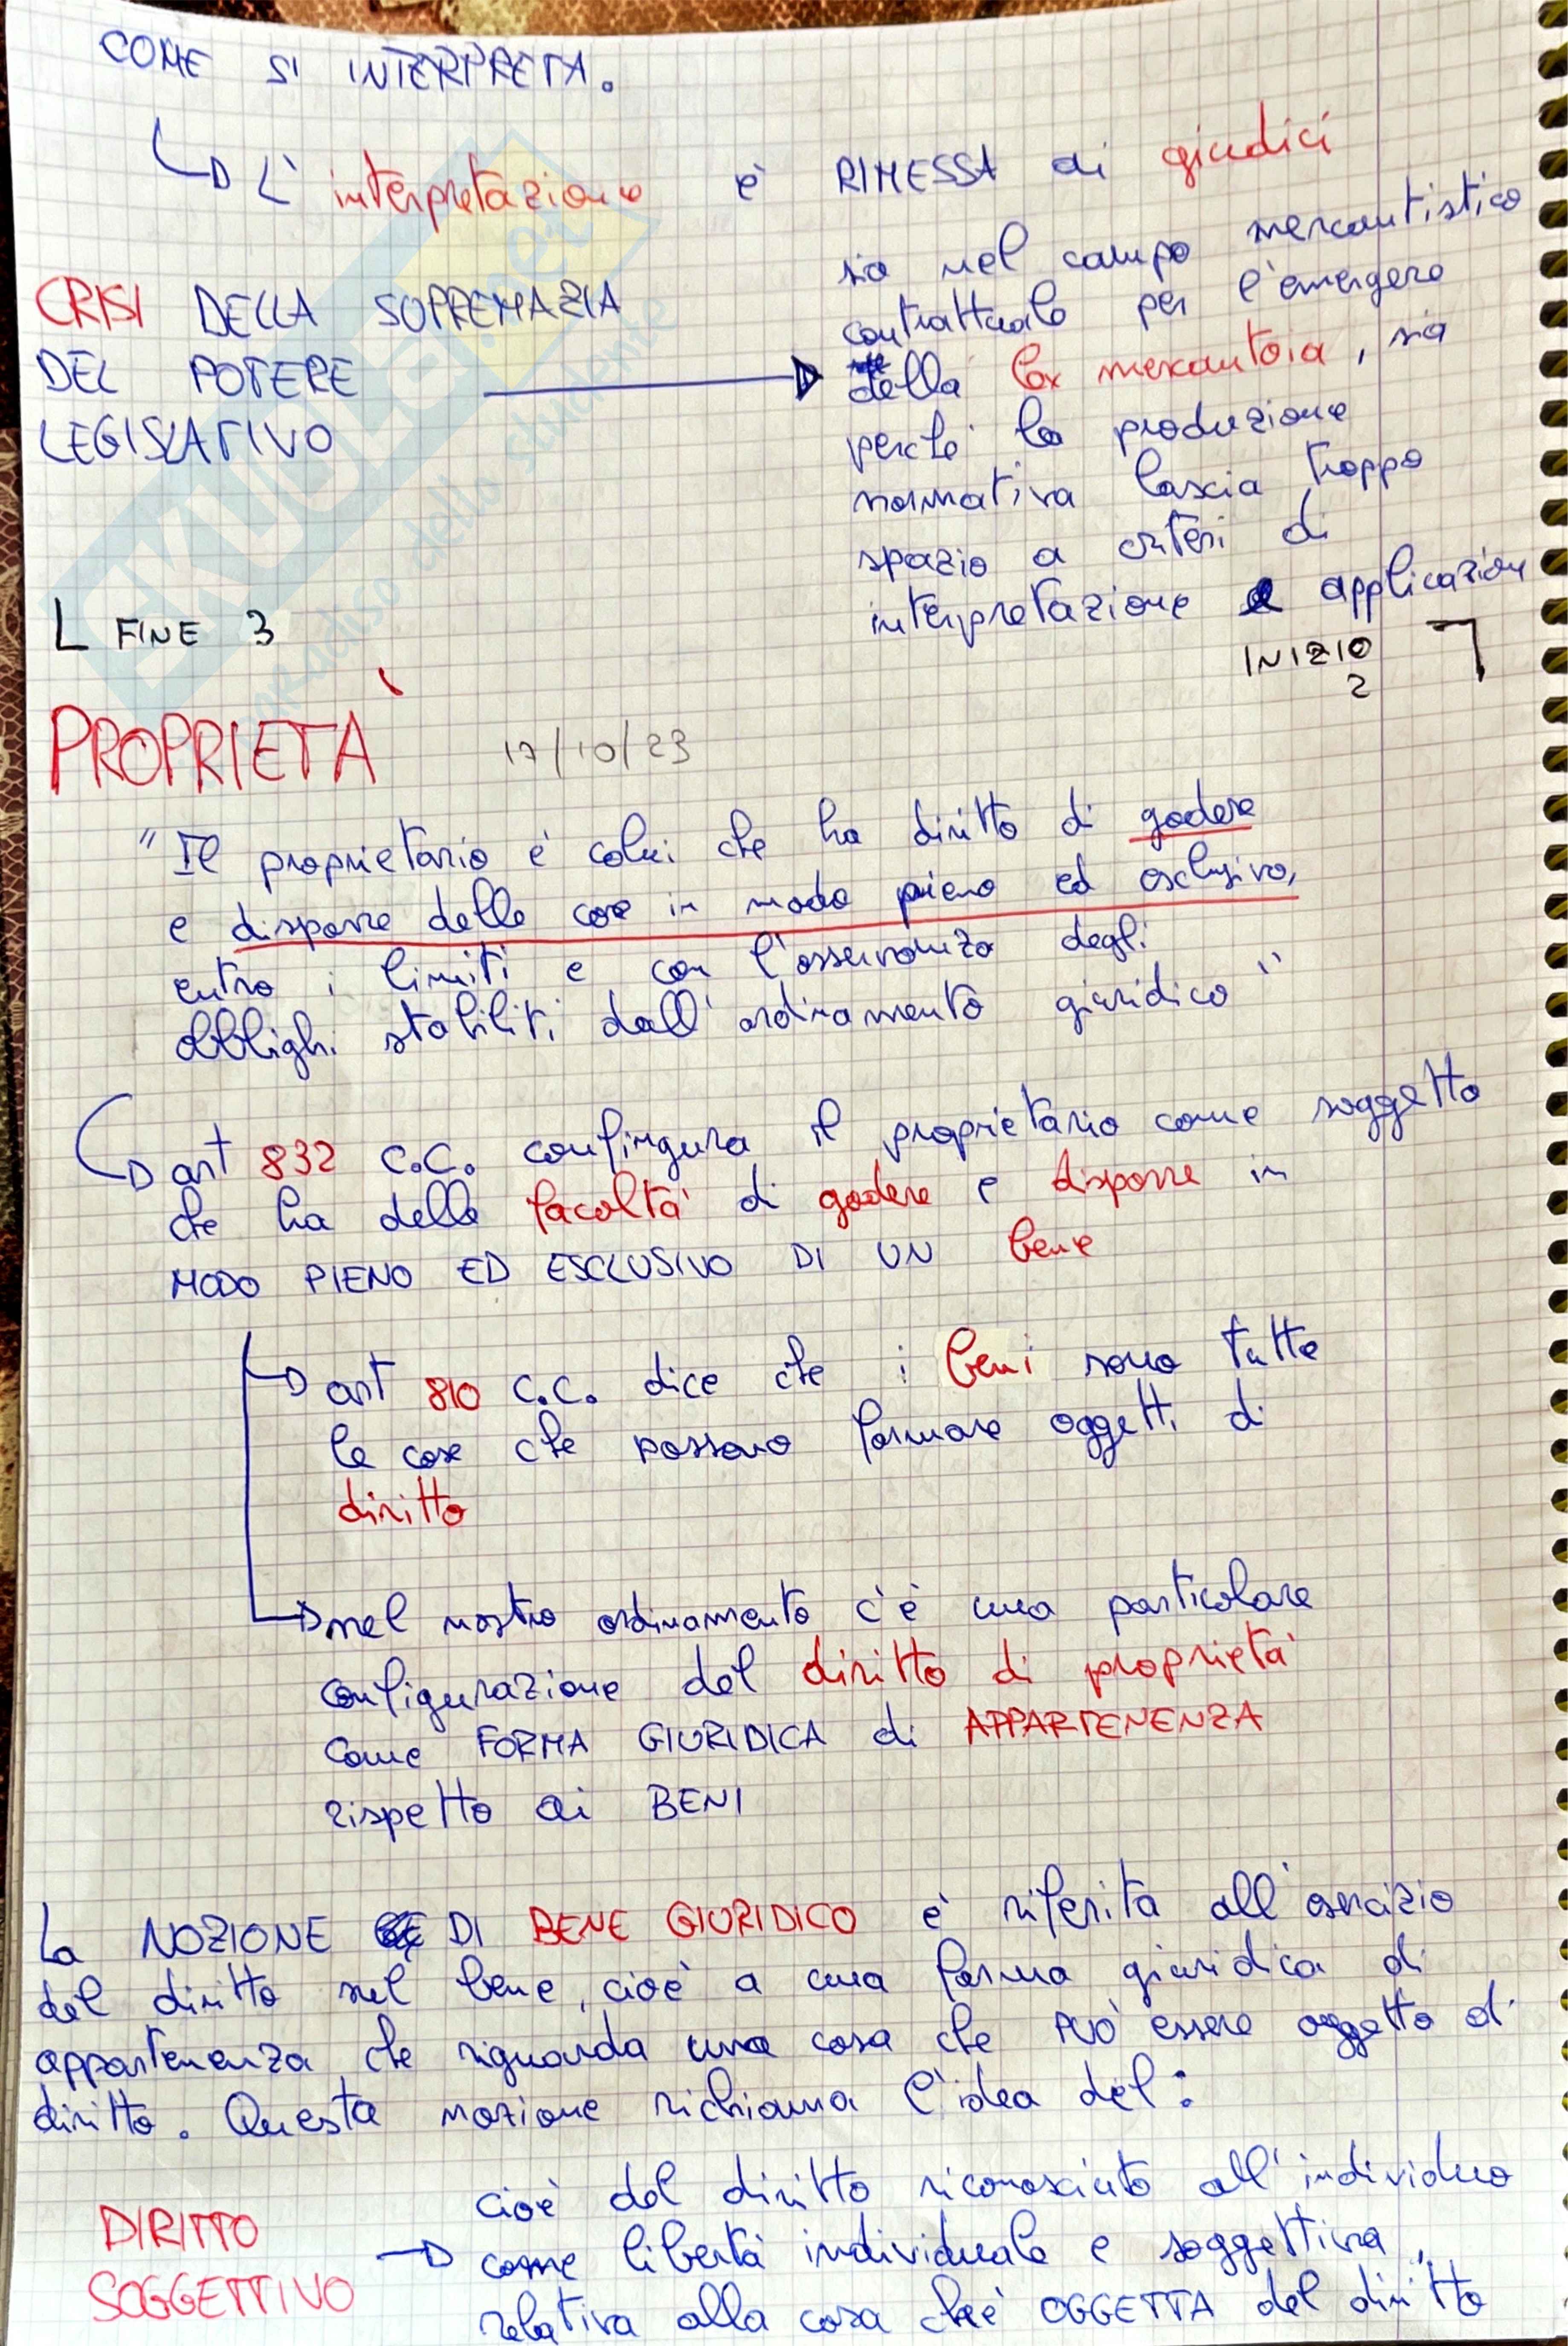 COME SI INTERPRETA.
L'interpretazione è RIMESSA ai giudici
CRISI DELLA SOPREMAZIA
DEL POTERE
LEGISLATIVO
sia nel campo mercantistico
contrattuale per l'emergere
della lex mercantoia, sia
perché la produzione
normativa lascia troppo
spazio a criteri di
interpretazione e applicazion
L FINE 3
INIZIO
2
PROPRIETÀ 17/10/23
"Il proprietario è colui che ha diritto di godere
e disporre delle cose in modo pieno ed esclusivo,
entro i limiti e con l'osservanza degli
obblighi stabiliti dall'ordinamento giuridico"
art 832 c.c. confingura il proprietario come soggetto
che ha delle facoltà di godere e disporre in
MODO PIENO ED ESCLUSIVO DI UN bene
art 810 c.c. dice che i beni sono tutte
le cose che possono formare oggetti di
diritto
nel nostro ordinamento c'è una particolare
configurazione del diritto di proprietà
come FORMA GIURIDICA di APPARTENENZA
rispetto ai BENI
La NOZIONE DI BENE GIURIDICO è riferita all'esercizio
del diritto sul bene, cioè a una forma giuridica di
appartenenza che riguarda una cosa che PUÒ essere oggetto di
diritto. Questa nozione richiama l'idea del:
DIRITTO
SOGGETTIVO
cioè del diritto riconosciuto all'individuo
come libertà individuale e soggettiva,
relativa alla cosa che è OGGETTA del diritto
SKUOLA.net
paradiso dello studente